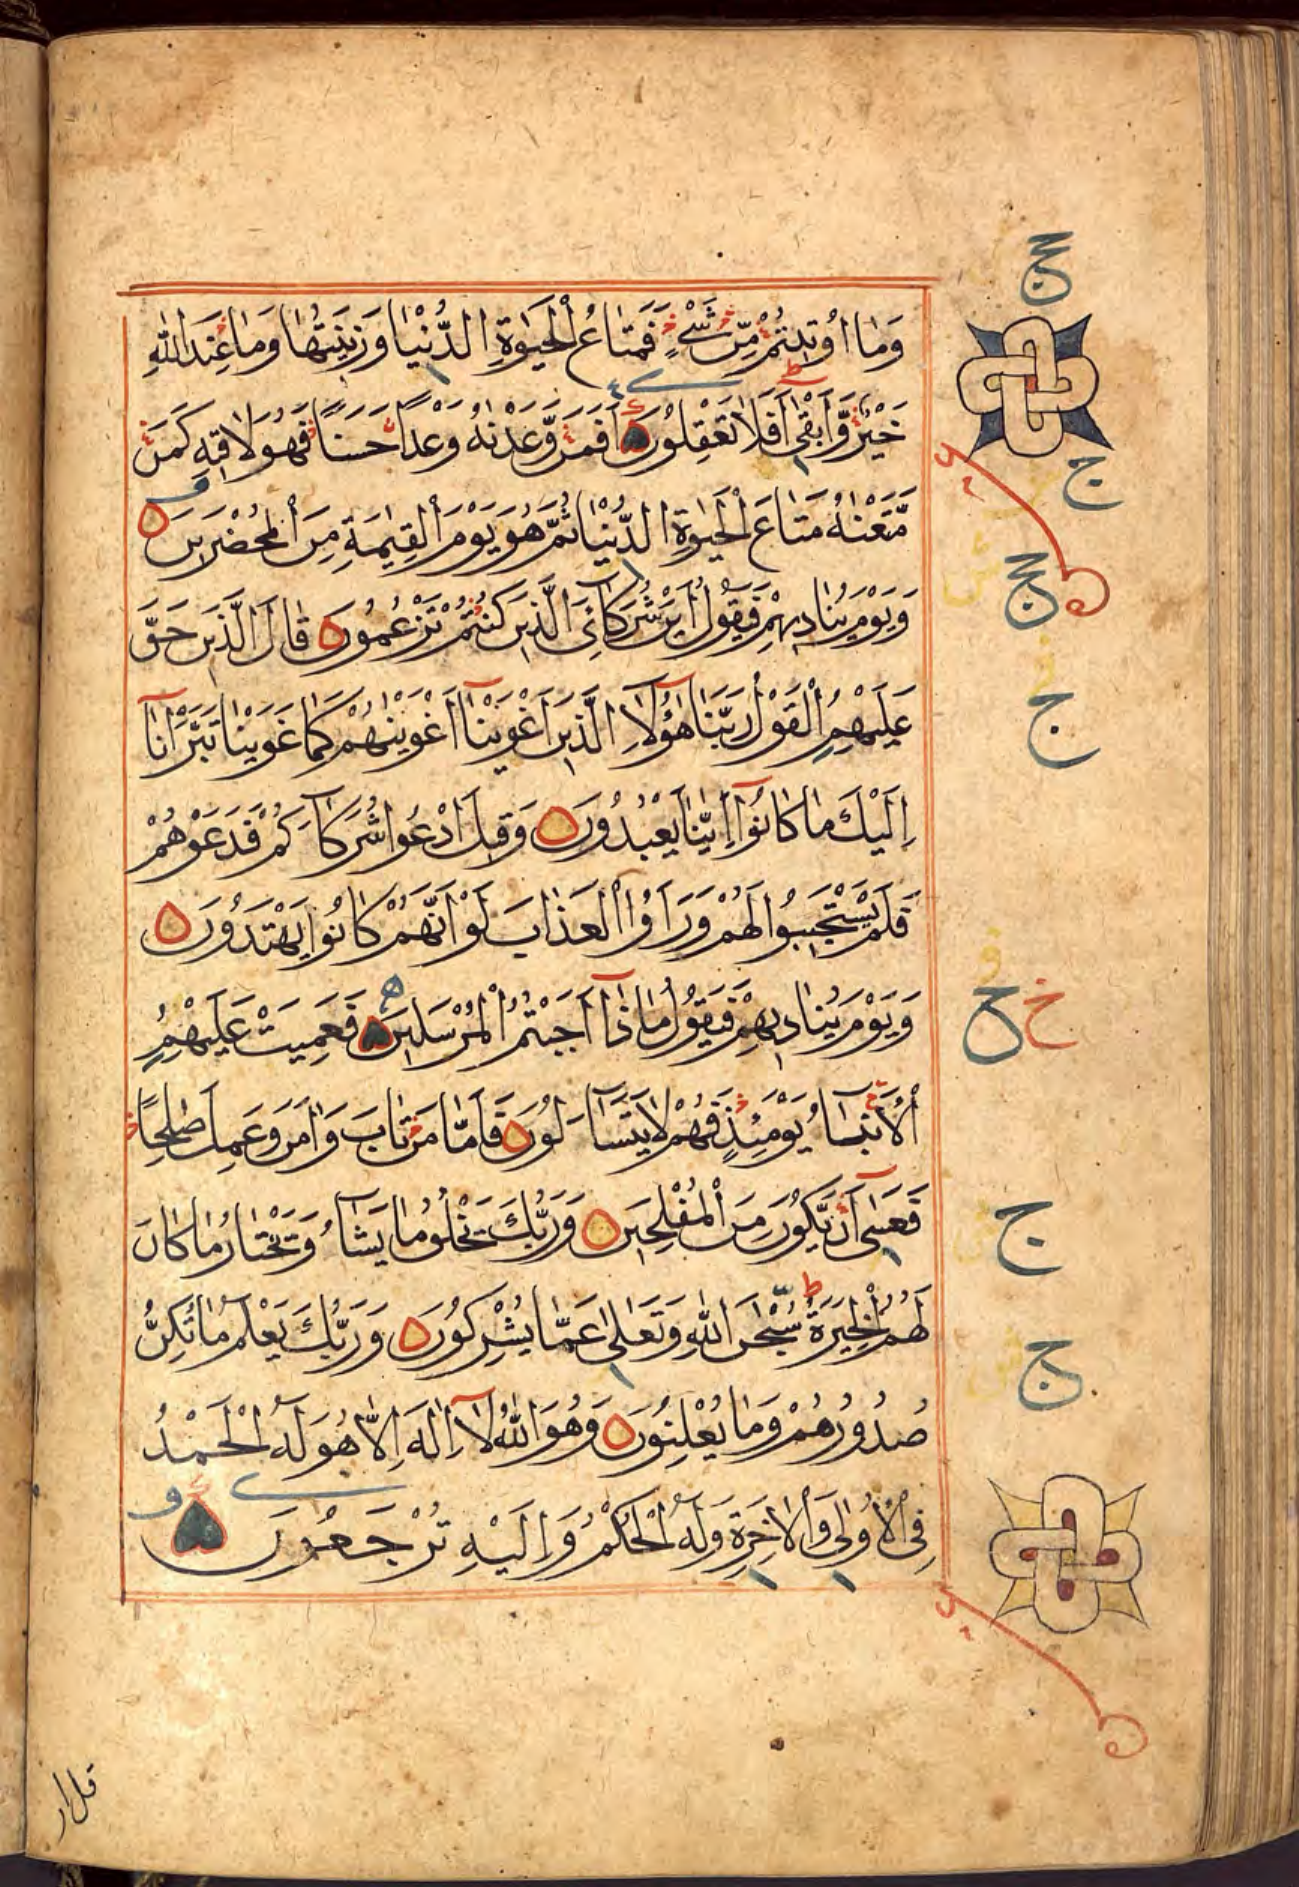 وَمَا اُوتِيتُمْ مِّنْ شَيْءٍ فَمَتَاعُ الْحَيٰوةِ الدُّنْيَا وَزِيْنَتُهَا وَمَا عِنْدَ اللّٰهِ
خَيْرٌ وَّاَبْقٰى اَفَلَا تَعْقِلُوْنَ اَفَمَنْ وَّعَدْنٰهُ وَعْدًا حَسَنًا فَهُوَ لَاقِيْهِ كَمَنْ
مَّتَّعْنٰهُ مَتَاعَ الْحَيٰوةِ الدُّنْيَا ثُمَّ هُوَ يَوْمَ الْقِيٰمَةِ مِنَ الْمُحْضَرِيْنَ
وَيَوْمَ يُنَادِيْهِمْ فَيَقُوْلُ اَيْنَ شُرَكَائِيَ الَّذِيْنَ كُنْتُمْ تَزْعُمُوْنَ قَالَ الَّذِيْنَ حَقَّ
عَلَيْهِمُ الْقَوْلُ رَبَّنَا هٰؤُلَاءِ الَّذِيْنَ اَغْوَيْنَا اَغْوَيْنٰهُمْ كَمَا غَوَيْنَا تَبَرَّأْنَا
اِلَيْكَ مَا كَانُوْا اِيَّانَا يَعْبُدُوْنَ وَقِيْلَ ادْعُوْا شُرَكَآءَكُمْ فَدَعَوْهُمْ
فَلَمْ يَسْتَجِيْبُوْا لَهُمْ وَرَاَوُا الْعَذَابَ لَوْ اَنَّهُمْ كَانُوْا يَهْتَدُوْنَ
وَيَوْمَ يُنَادِيْهِمْ فَيَقُوْلُ مَاذَا اَجَبْتُمُ الْمُرْسَلِيْنَ فَعَمِيَتْ عَلَيْهِمُ
الْاَنْبَآءُ يَوْمَئِذٍ فَهُمْ لَا يَتَسَآءَلُوْنَ فَاَمَّا مَنْ تَابَ وَاٰمَنَ وَعَمِلَ صٰلِحًا
فَعَسٰى اَنْ يَّكُوْنَ مِنَ الْمُفْلِحِيْنَ وَرَبُّكَ يَخْلُقُ مَا يَشَآءُ وَيَخْتَارُ مَا كَانَ
لَهُمُ الْخِيَرَةُ سُبْحٰنَ اللّٰهِ وَتَعٰلٰى عَمَّا يُشْرِكُوْنَ وَرَبُّكَ يَعْلَمُ مَا تُكِنُّ
صُدُوْرُهُمْ وَمَا يُعْلِنُوْنَ وَهُوَ اللّٰهُ لَا اِلٰهَ اِلَّا هُوَ لَهُ الْحَمْدُ
فِى الْاُوْلٰى وَالْاٰخِرَةِ وَلَهُ الْحُكْمُ وَاِلَيْهِ تُرْجَعُوْنَ
ج
ج
ج
خ
ج
ج
قل ار